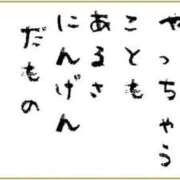 やっちゃう
ことも
あるさ
にんげん
だもの